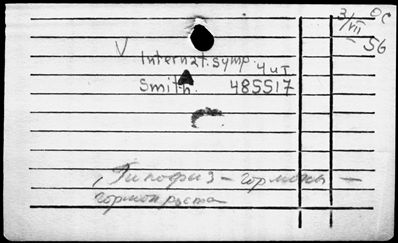 3/VII OC
- 56
V Internat. symp. 4ит
Smith. 485517
"Гипофиз — гормоны —
гормон роста